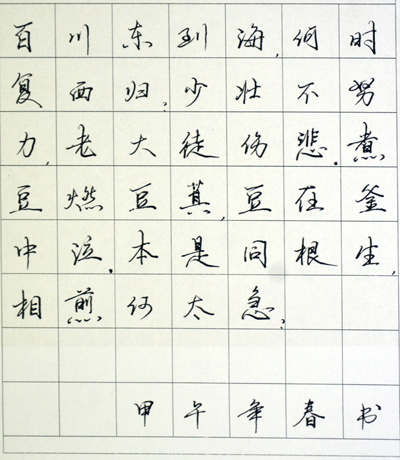 百川东到海,何时
复西归,少壮不努
力,老大徒伤悲.煮
豆燃豆萁,豆在釜
中泣.本是同根生,
相煎何太急,
甲午年春书